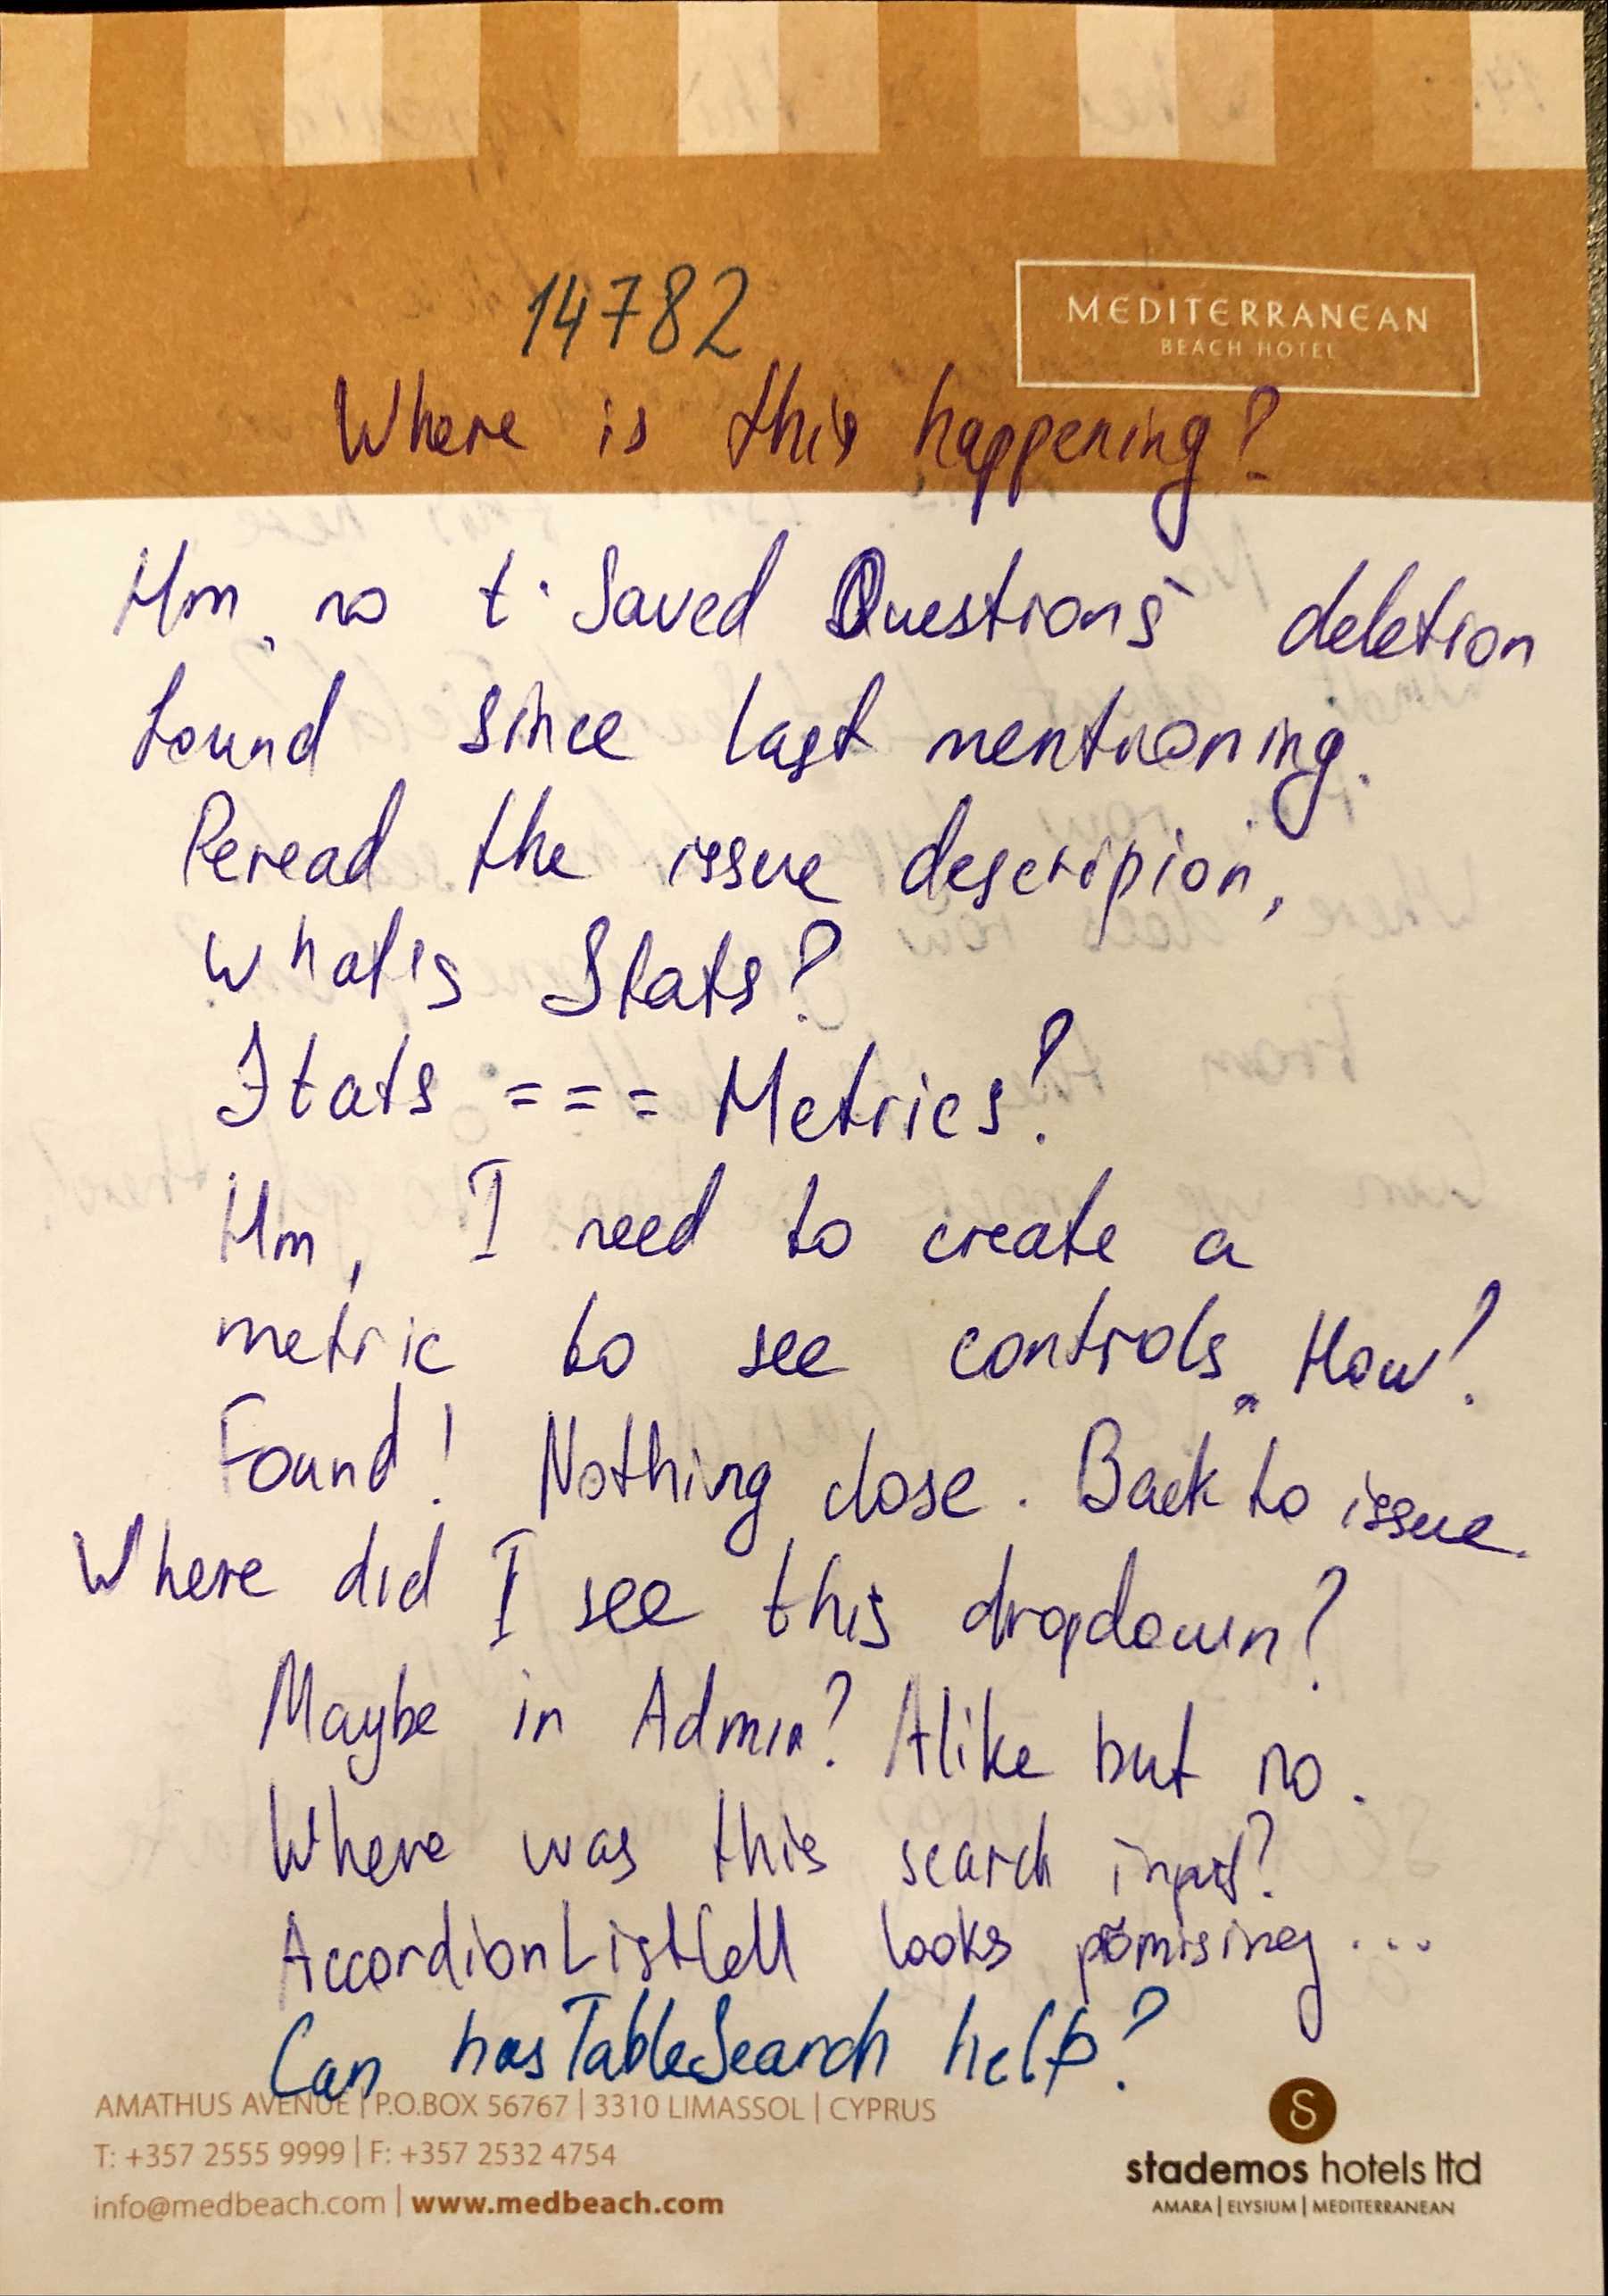 14782
MEDITERRANEAN
BEACH HOTEL
Where is this happening?
Hm, no t`Saved Questions` deletion
found since last mentioning.
Reread the issue descripion,
what's Stats?
Stats === Metrics?
Hm, I need to create a
metric to see controls. How?
Found! Nothing close. Back to issue.
Where did I see this dropdown?
Maybe in Admin? Alike but no.
Where was this search input?
AccordionListCell looks promising...
Can hasTableSearch help?
AMATHUS AVENUE | P.O.BOX 56767 | 3310 LIMASSOL | CYPRUS
T: +357 2555 9999 | F: +357 2532 4754
info@medbeach.com | www.medbeach.com
S
stademos hotels ltd
AMARA | ELYSIUM | MEDITERRANEAN